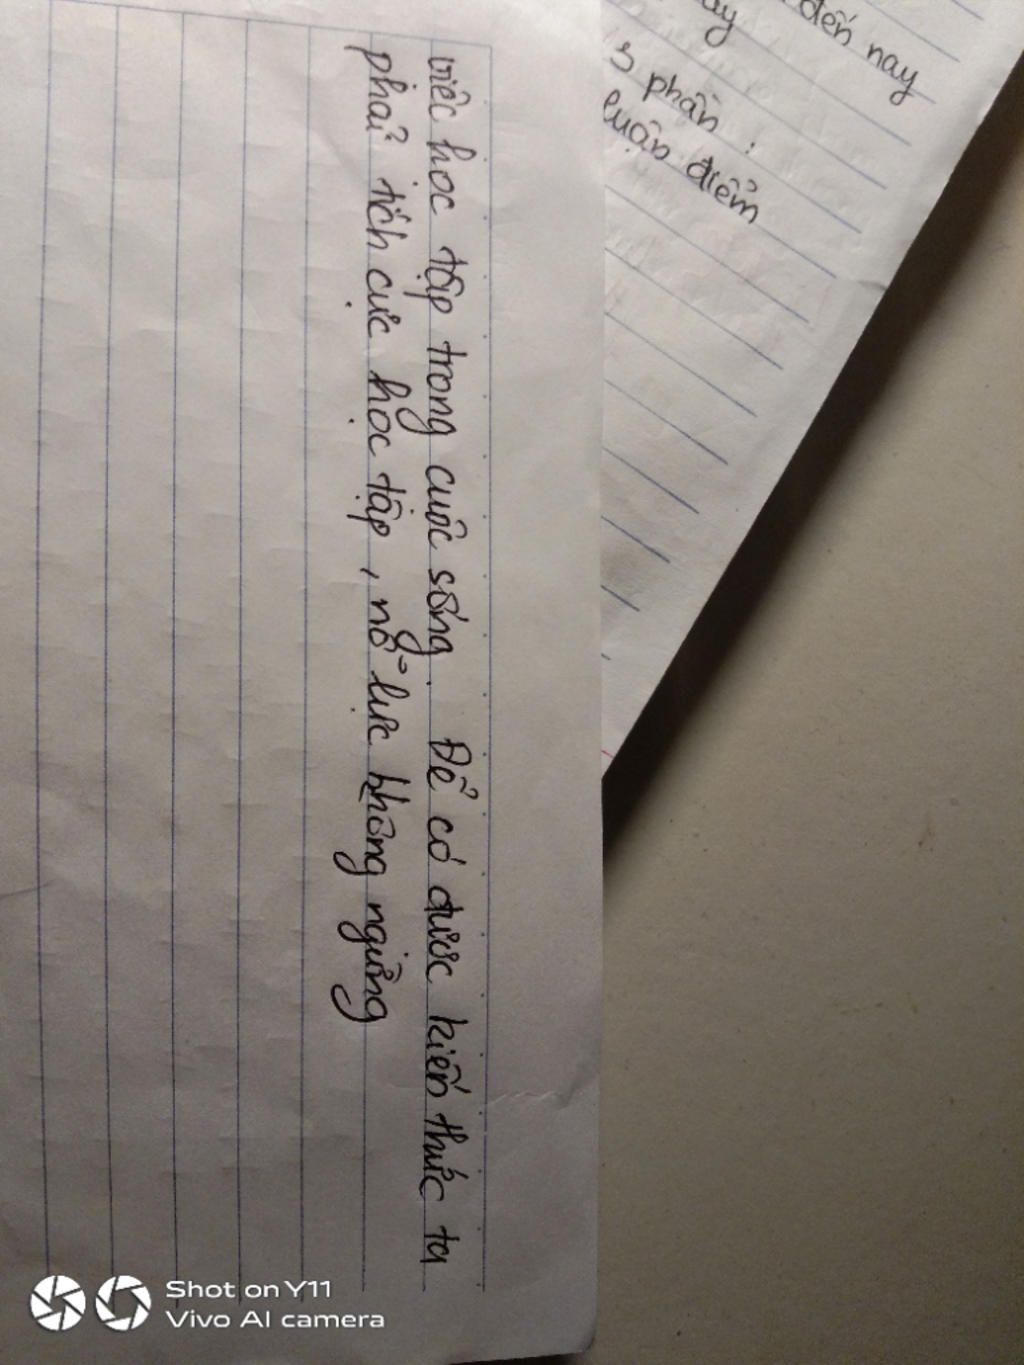 việc học tập trong cuộc sống. Để có được kiến thức ta
phải tích cực học tập, nỗ lực không ngừng
đến nay
ay
3 phần :
luận điểm
Shot on Y11
Vivo AI camera